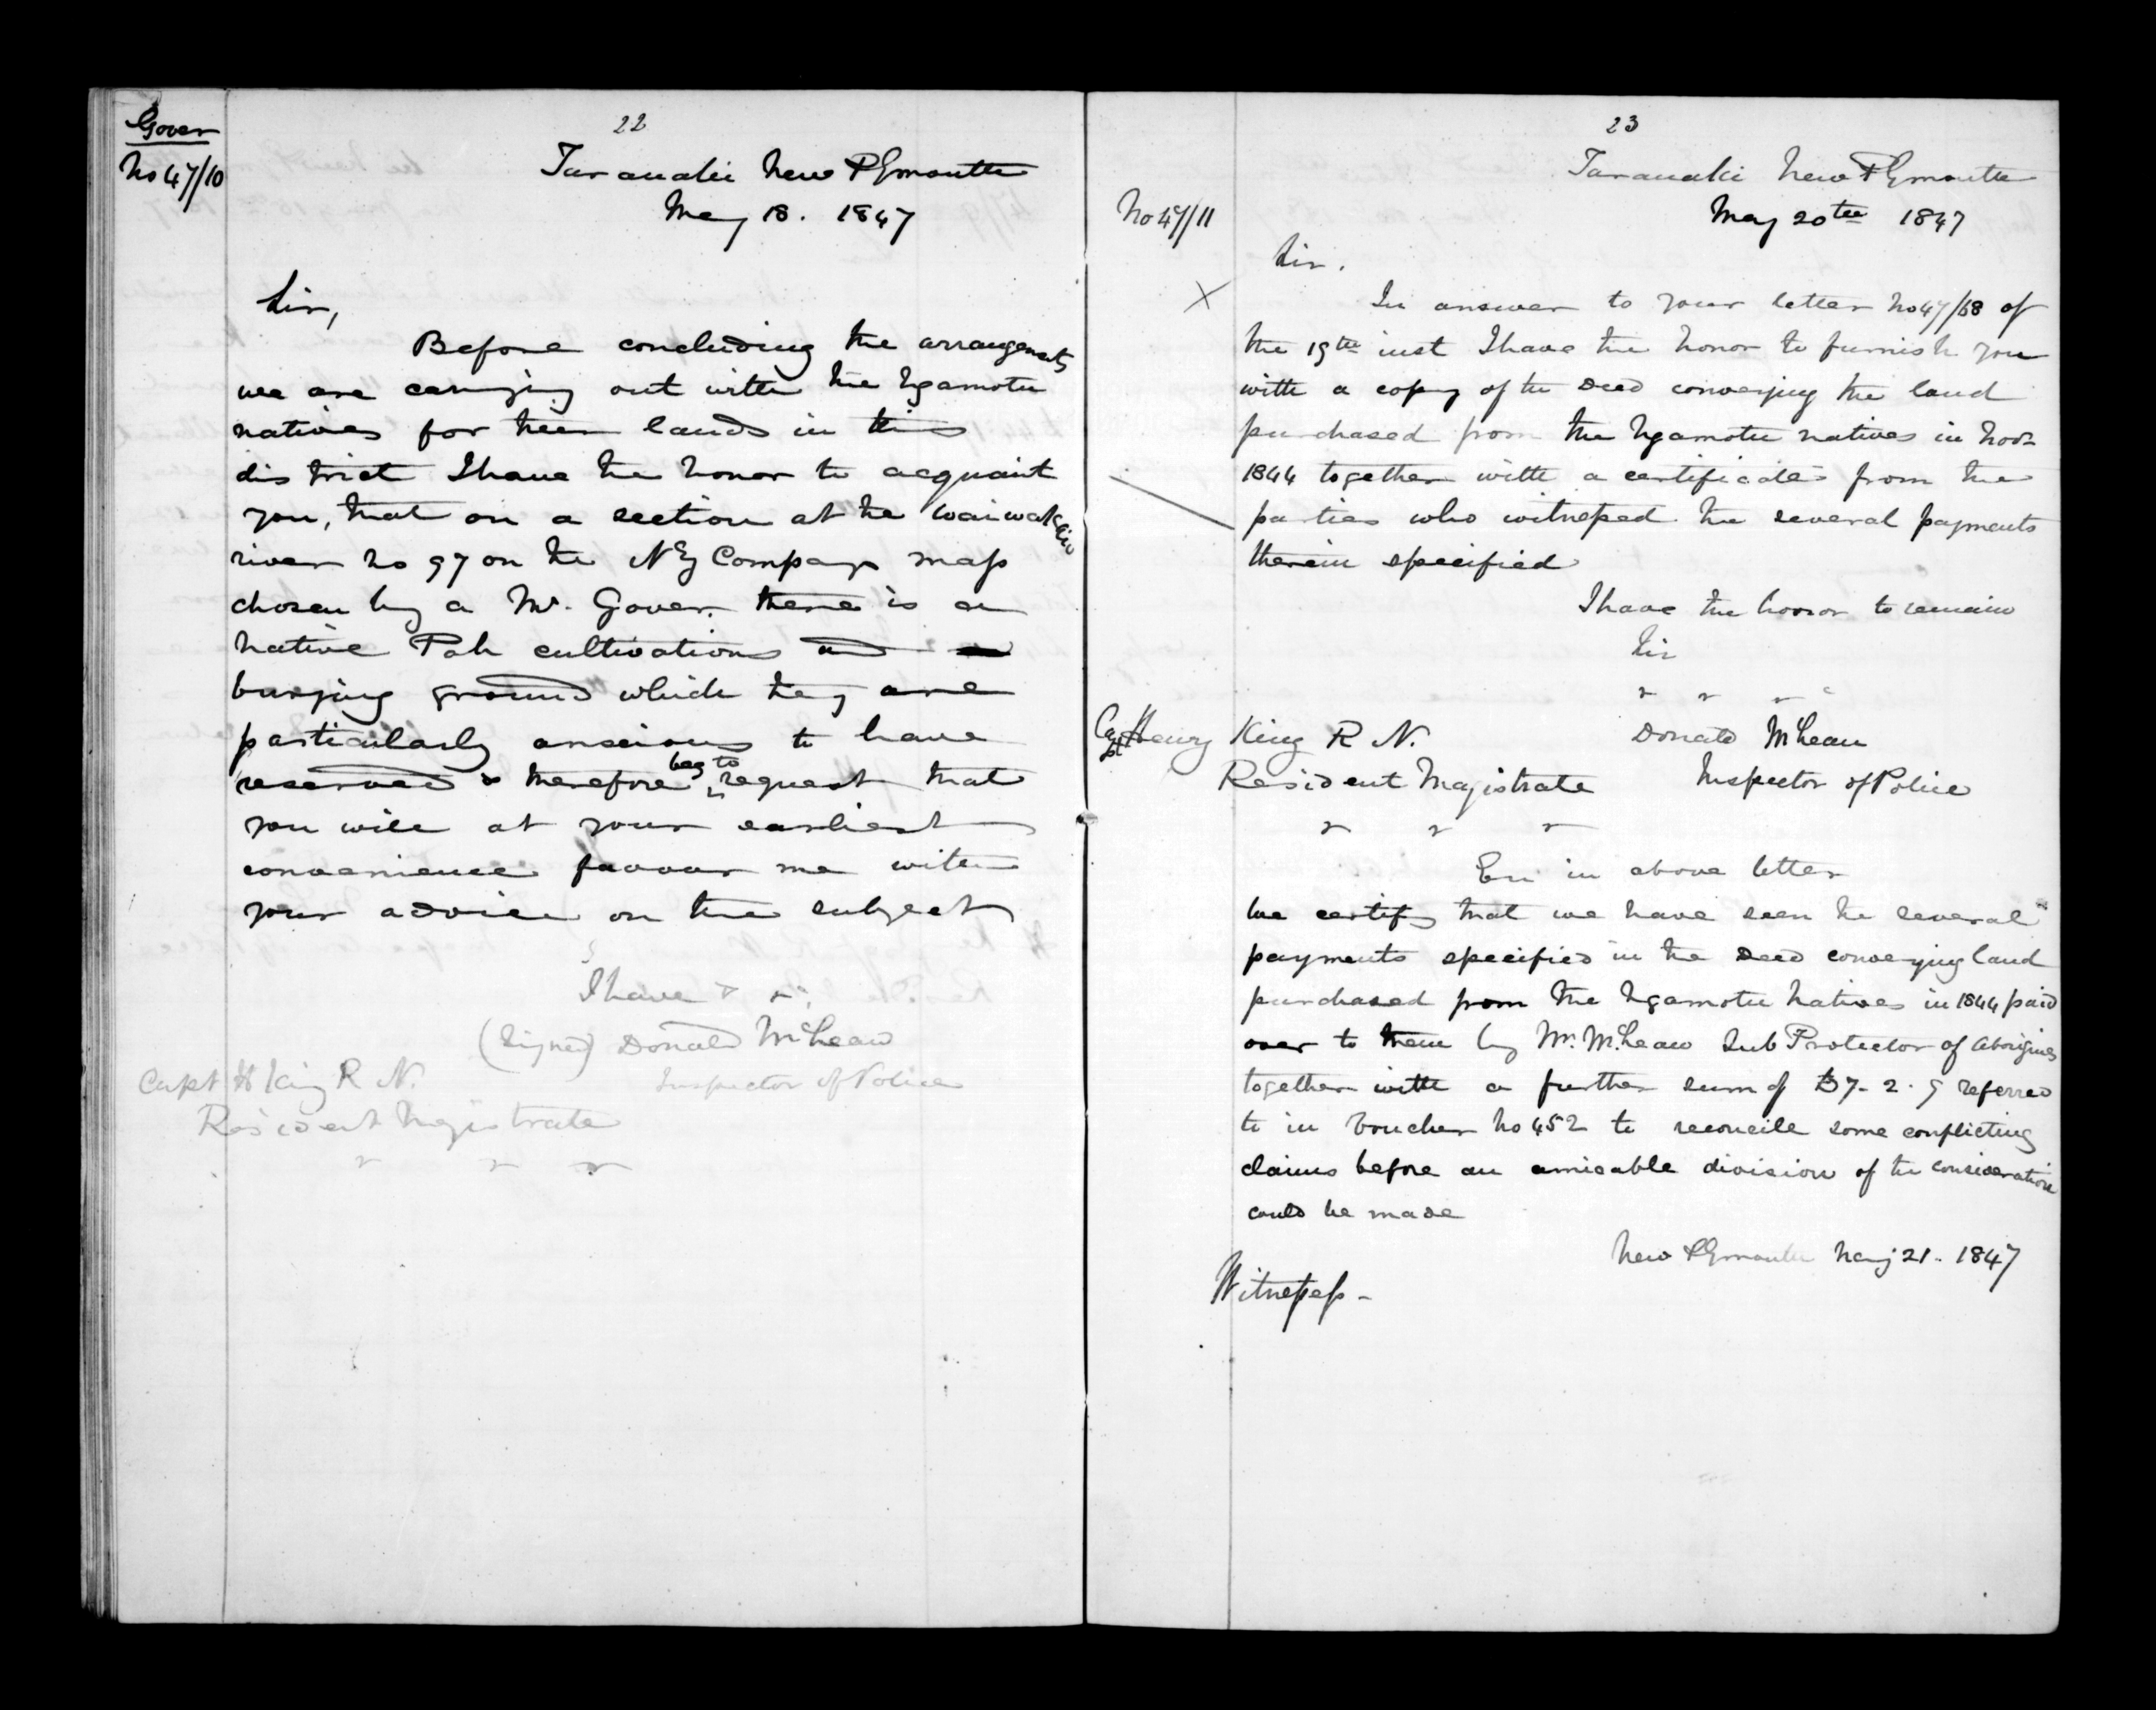 Gover
No 47/10
22
Taranaki New Plymouth
May 18. 1847
Sir,
Before concluding the arrangemets
we are carrying out with the Ngamotu
natives for their lands in this
district I have the honor to acquaint
you, that on a section at the Waiwakaiu
river No 97 on the NZ Companys map
chosen by a Mr. Gover. there is a
native Pah cultivations and
burying ground which they are
particularly anxious to have
reserved & therefore beg to request that
you will at your earliest
convenience favour me with
your advice on the subject
I have & &c.
(Signed) Donald McLean
Capt H King R N. Inspector of Police
Resident Magistrate
" " "
23
Taranaki New Plymouth
No 47/11
May 20th 1847
Sir.
In answer to your letter No 47/68 of
the 19th inst I have the honor to furnish you
with a copy of the Deed conveying the land
purchased from the Ngamotu natives in Novr
1844 together with a certificate from the
parties who witnessed the several payments
therein specified
I have the honor to remain
Sir
" " "
Capt Henry King R N. Donald McLean
Resident Magistrate Inspector of Police
" " "
En in above letter
We certify that we have seen the several
payments specified in the Deed conveying land
purchased from the Ngamotu Natives in 1844 paid
over to them by Mr. McLean Sub Protector of Aborigines
together with a further sum of £7. 2. 9 referred
to in Voucher No 452 to reconcile some conflicting
claims before an amicable division of the consideration
could be made
New Plymouth May 21. 1847
Witnesses -